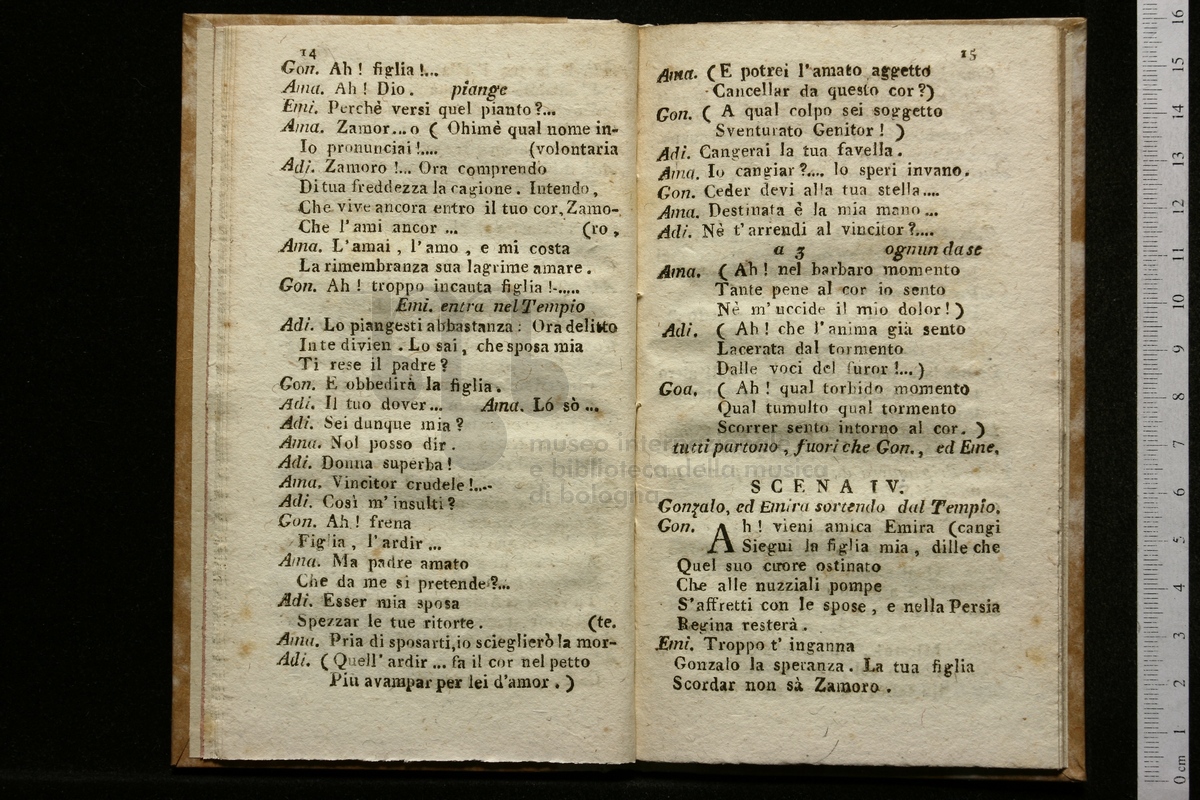 14
Gon. Ah ! figlia !...
Ama. Ah ! Dio. piange
Emi. Perchè versi quel pianto ?...
Ama. Zamor...o ( Ohimè qual nome in-
Io pronunciai !.... (volontaria
Adi. Zamoro !... Ora comprendo
Di tua freddezza la cagione . Intendo ,
Che vive ancora entro il tuo cor, Zamo-
Che l'ami ancor ... (ro ,
Ama. L'amai , l'amo , e mi costa
La rimembranza sua lagrime amare .
Gon. Ah ! troppo incauta figlia !-.....
Emi. entra nel Tempio
Adi. Lo piangesti abbastanza : Ora delitto
In te divien . Lo sai , che sposa mia
Ti rese il padre ?
Gon. E obbedirà la figlia .
Adi. Il tuo dover ... Ama. Ló sò ...
Adi. Sei dunque mia ?
Ama. Nol posso dir .
Adi. Donna superba !
Ama. Vincitor crudele !....
Adi. Così m'insulti ?
Gon. Ah ! frena
Figlia , l'ardir ...
Ama. Ma padre amato
Che da me si pretende ?...
Adi. Esser mia sposa
Spezzar le tue ritorte . (te.
Ama. Pria di sposarti, io scieglierò la mor-
Adi. ( Quell' ardir ... fa il cor nel petto
Più avampar per lei d'amor . )
15
Ama. ( E potrei l'amato aggetto
Cancellar da questo cor ?)
Gon. ( A qual colpo sei soggetto
Sventurato Genitor ! )
Adi. Cangerai la tua favella .
Ama. Io cangiar ?.... lo speri invano.
Gon. Ceder devi alla tua stella ....
Ama. Destinata è la mia mano ...
Adi. Nè t'arrendi al vincitor ?....
a 3 ognun da se
Ama. ( Ah ! nel barbaro momento
Tante pene al cor io sento
Nè m'uccide il mio dolor ! )
Adi. ( Ah ! che l'anima già sento
Lacerata dal tormento
Dalle voci del furor !... )
Goa. ( Ah ! qual torbido momento
Qual tumulto qual tormento
Scorrer sento intorno al cor. )
tutti partono , fuori che Gon. , ed Eme.
SCENA IV.
Gonzalo, ed Emira sortendo dal Tempio.
Gon. Ah ! vieni amica Emira (cangi
Siegui la figlia mia , dille che
Quel suo cuore ostinato
Che alle nuzziali pompe
S'affretti con le spose , e nella Persia
Regina resterà .
Emi. Troppo t'inganna
Gonzalo la speranza . La tua figlia
Scordar non sà Zamoro .
museo internazionale
e biblioteca della musica
di bologna
16
15
14
13
12
11
10
9
8
7
6
5
4
3
2
1
0 cm